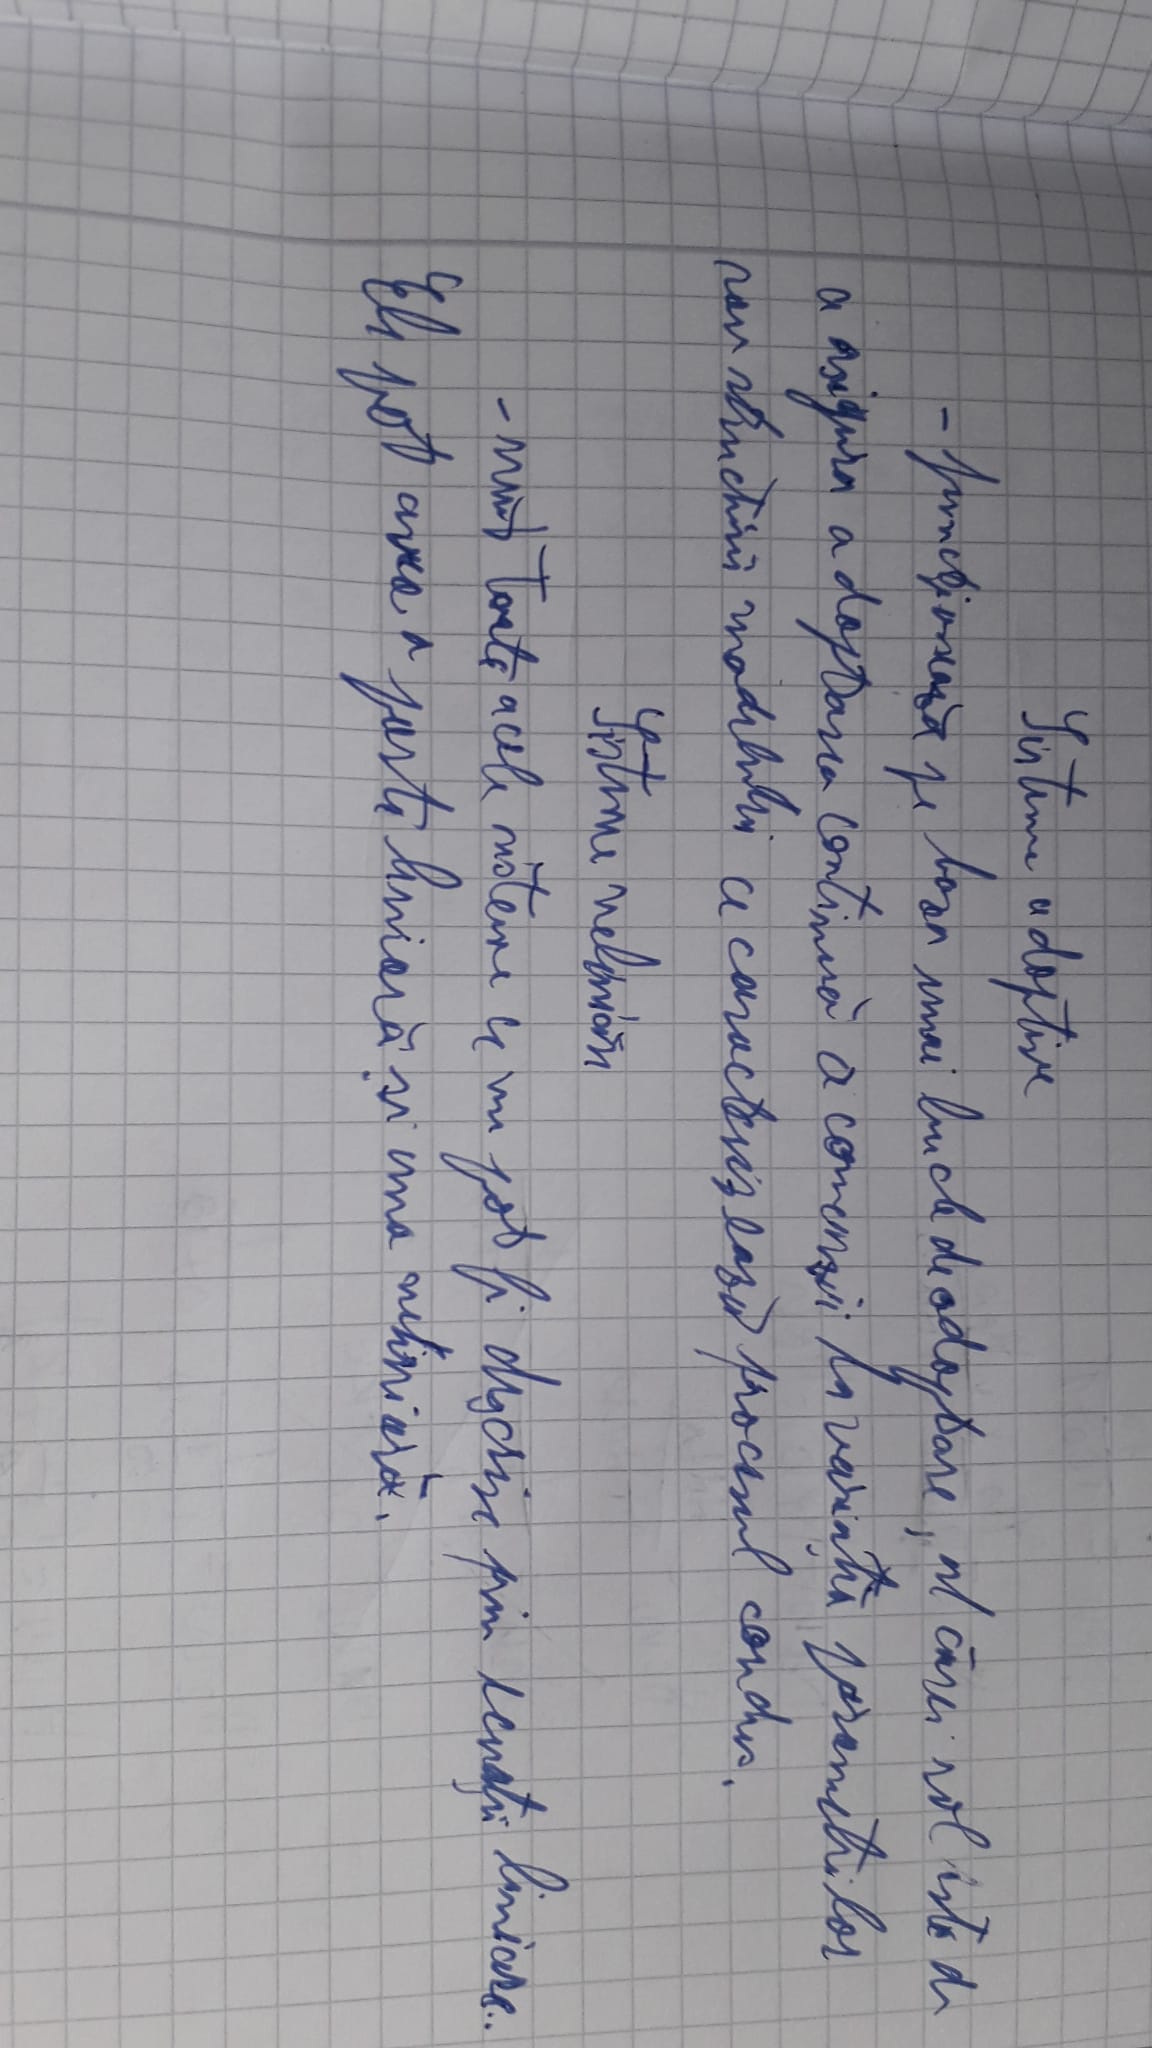 Sisteme adaptive
- funcționează pe baza unei bucle de adaptare, al cărei rol este de
a asigura adaptarea continuă a comenzii la variația parametrilor
sau structurii modelului ce caracterizează procesul condus.
Sisteme neliniare
- sunt toate acele sisteme ce nu pot fi descrise prin ecuații liniare..
Ele pot avea o parte liniară și una neliniară.